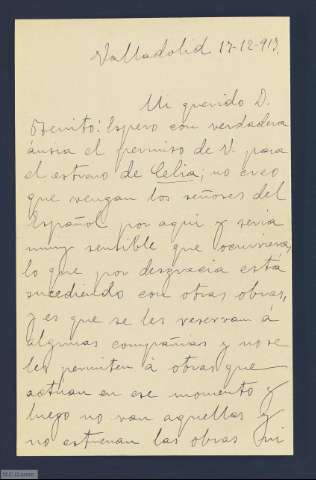 Valladolid 17-12-913
Mi querido D.
Benito: Espero con verdadera
ánsia el permiso de V. para
el estreno de Celia; no creo
que vengan los señores del
Español por aqui y seria
muy sensible que ocurriera,
lo que por desgracia está
sucediendo con otras obras,
y es que se les reservan á
algunas compañias y no se
les permiten á otras que
actuan en ese momento y
luego no van aquellas y
no estrenan las obras ni